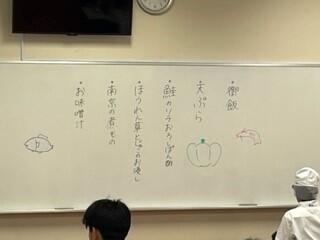 ・御飯
・天ぷら
・鮭の おろしぽん酢
・ほうれん草と のお浸し
・南京の煮もの
・お味噌汁